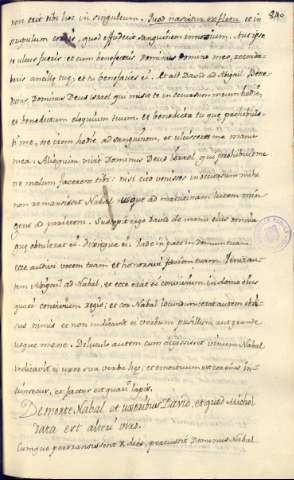 840
non erit tibi hoc in singultum. Quod nascitur ex fletu et in
scrupulum cordis, quod effuderis sanguinem innoxium. Aut ipse
te ultus fueris: et cum benefecerit Dominus domino meo, recorda
beris ancillę tuę, et tu benefacies ei. Et ait David ad Abigail Bene
dictus Dominus Deus israel qui misit te in occursum meum hodie,
et benedictum eloquium tuum. et benedicta tu que prohibuis
ti me, ne irem hodie ad sanguinem, et ulciscerer me manu
mea. Alioquin vivit Dominus Deus Israel qui prohibuit me
ne malum facerem tibi: nisi cito venisses in occursum mihi
non remansisset Nabal usque ad matutinam lucem min
gens ad parietem. Suscepit ergo David de manu eius omnia
que obtulerat ei. Dixitque ei. Vade in pace in domum tuam
ecce audivi vocem tuam et honoravi faciem tuam. Venit au
tem Abigail ad Nabal, et ecce erat ei convivium in domo eius
quasi convivium regis: et cor Nabal iocundum: erat autem ebri
us nimis et non indicavit ei verbum pusillum aut grande
usque mane. Diluculo autem cum digessisset vinum Nabal
indicavit ei uxor sua verba hęc, et emortuum est cor eius in
trinsecus, et factus est quasi lapis.
De morte Nabal et uxoribus David, et quod Michol
data est alteri viro.
Cumque pertransissent X dies, percussit Dominus Nabal